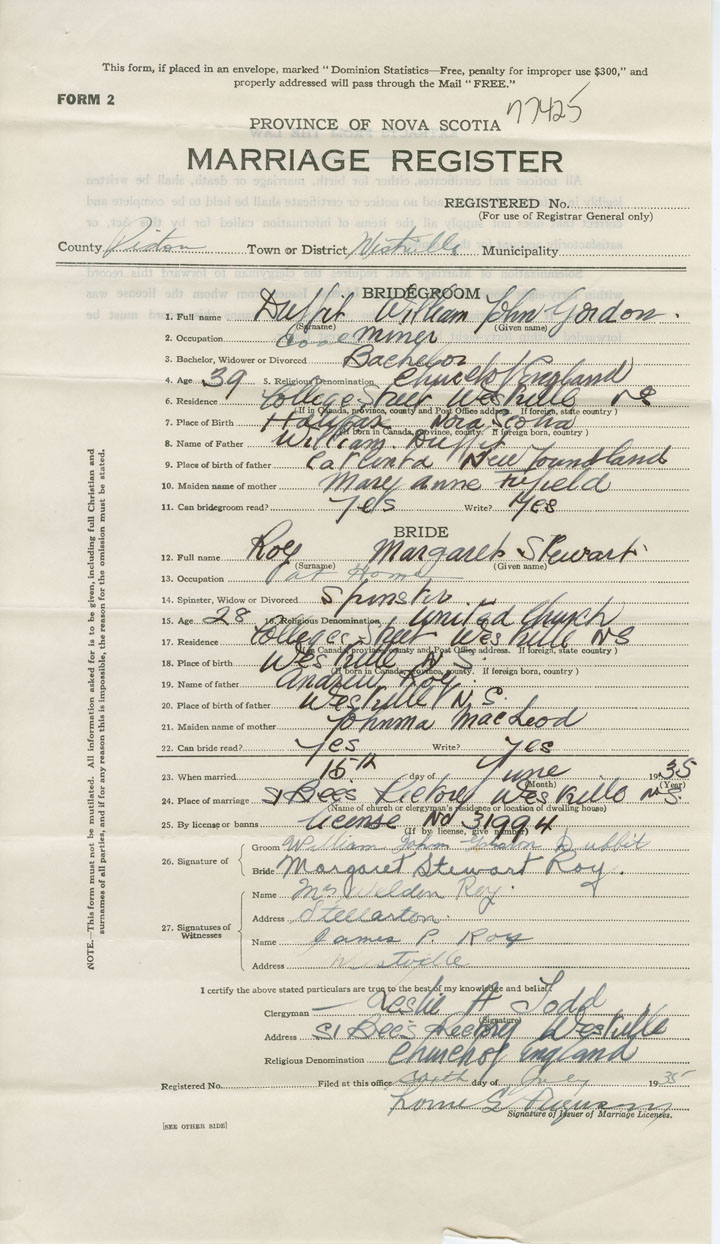 This form, if placed in an envelope, marked "Dominion Statistics—Free, penalty for improper use $300," and
properly addressed will pass through the Mail "FREE."
FORM 2
77425
PROVINCE OF NOVA SCOTIA
MARRIAGE REGISTER
REGISTERED No.
(For use of Registrar General only)
County Pictou Town or District Westville Municipality
BRIDEGROOM
1. Full name Duffit William John Gordon.
(Surname) (Given name)
2. Occupation Coal miner
3. Bachelor, Widower or Divorced Bachelor
4. Age 39 5. Religious Denomination Church of England
6. Residence College Street Westville NS
(If in Canada, province, county and Post Office address. If foreign, state country)
7. Place of Birth Halifax Nova Scotia
(If born in Canada, province, county. If foreign born, country)
8. Name of Father William Duffit
9. Place of birth of father New Foundland
10. Maiden name of mother Mary anne Fifield
11. Can bridegroom read? Yes Write? Yes
BRIDE
12. Full name Roy Margaret Stewart
(Surname) (Given name)
13. Occupation at Home
14. Spinster, Widow or Divorced Spinster
15. Age 28 16. Religious Denomination United Church
17. Residence College Street Westville NS
(If in Canada, province, county and Post Office address. If foreign, state country)
18. Place of birth Westville N.S.
(If born in Canada, province, county. If foreign born, country)
19. Name of father Andrew Roy.
20. Place of birth of father Westville N.S.
21. Maiden name of mother Johnma MacLeod
22. Can bride read? Yes Write? Yes
23. When married 15th day of June 1935
(Month) (Year)
24. Place of marriage St Bees Rectory Westville N.S.
(Name of church or clergyman's residence or location of dwelling house)
25. By license or banns license No 31994
(If by license, give number)
26. Signature of
Groom William John Gordon
Bride Margaret Stewart Roy.
27. Signatures of Witnesses
Name Mrs Weldon Roy.
Address Stellarton
Name James P. Roy
Address Westville
I certify the above stated particulars are true to the best of my knowledge and belief.
Clergyman Leslie A Todd
(Signature)
Address St Bee's Rectory Westville
Religious Denomination Church of England
Registered No. Filed at this office day of July 1935
Lorne G Ferguson
Signature of Issuer of Marriage Licenses.
[SEE OTHER SIDE]
NOTE.—This form must not be mutilated. All information asked for is to be given, including full Christian and
surnames of all parties, and if for any reason this is impossible, the reason for the omission must be stated.